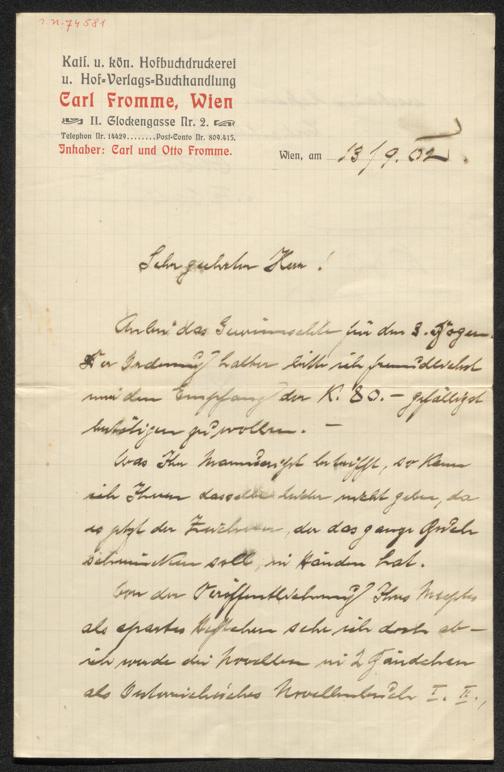 I.N. 74581
Kais. u. kön. Hofbuchdruckerei
u. Hof-Verlags-Buchhandlung
Carl Fromme, Wien
II. Glockengasse Nr. 2.
Telephon Nr. 14429........Post-Conto Nr. 809.415.
Inhaber: Carl und Otto Fromme.
Wien, am 13/9. 02.
Sehr geehrter Herr!
Anbei das für den 3. Bogen.
Der Ordnung halber bitte ich freundlichst
mir den Empfang der K. 80.- gefälligst
bestätigen zu wollen. -
Was Ihr Manuscript betrifft, so kann
ich Ihnen dasselbe leider nicht geben, da
es jetzt der Zeichner, der das ganze Buch
schmücken soll, in Händen hat.
Von der Veröffentlichung Ihres Mscptes
als apartes Heftchen sehe ich doch ab -
ich werde die Novellen in 2 Bändchen
als Österreichisches Novellenbuch I. II.,